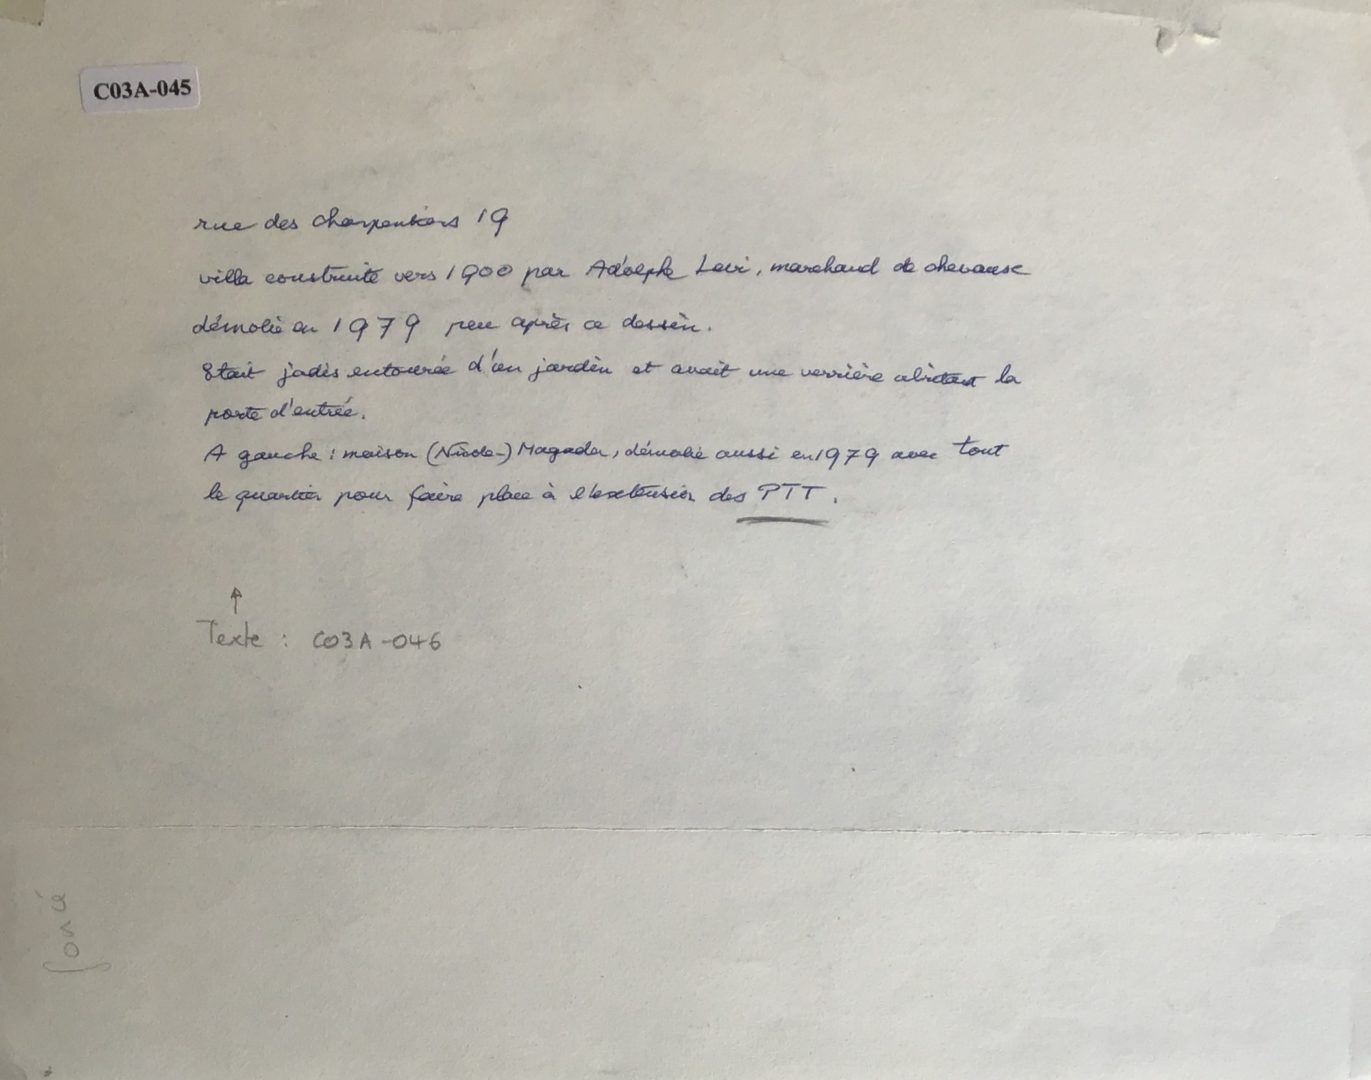 C03A-045
rue des charpentiers 19
villa construite vers 1900 par Adolphe Levi, marchand de chevaux
démolie en 1979 peu après ce dessin.
Etait jadis entourée d'un jardin et avait une verrière abritant la
porte d'entrée.
A gauche : maison (Nicole-) démolie aussi en 1979 avec tout
le quartier pour faire place à l'extension des PTT.
↑
Texte : C03A-046